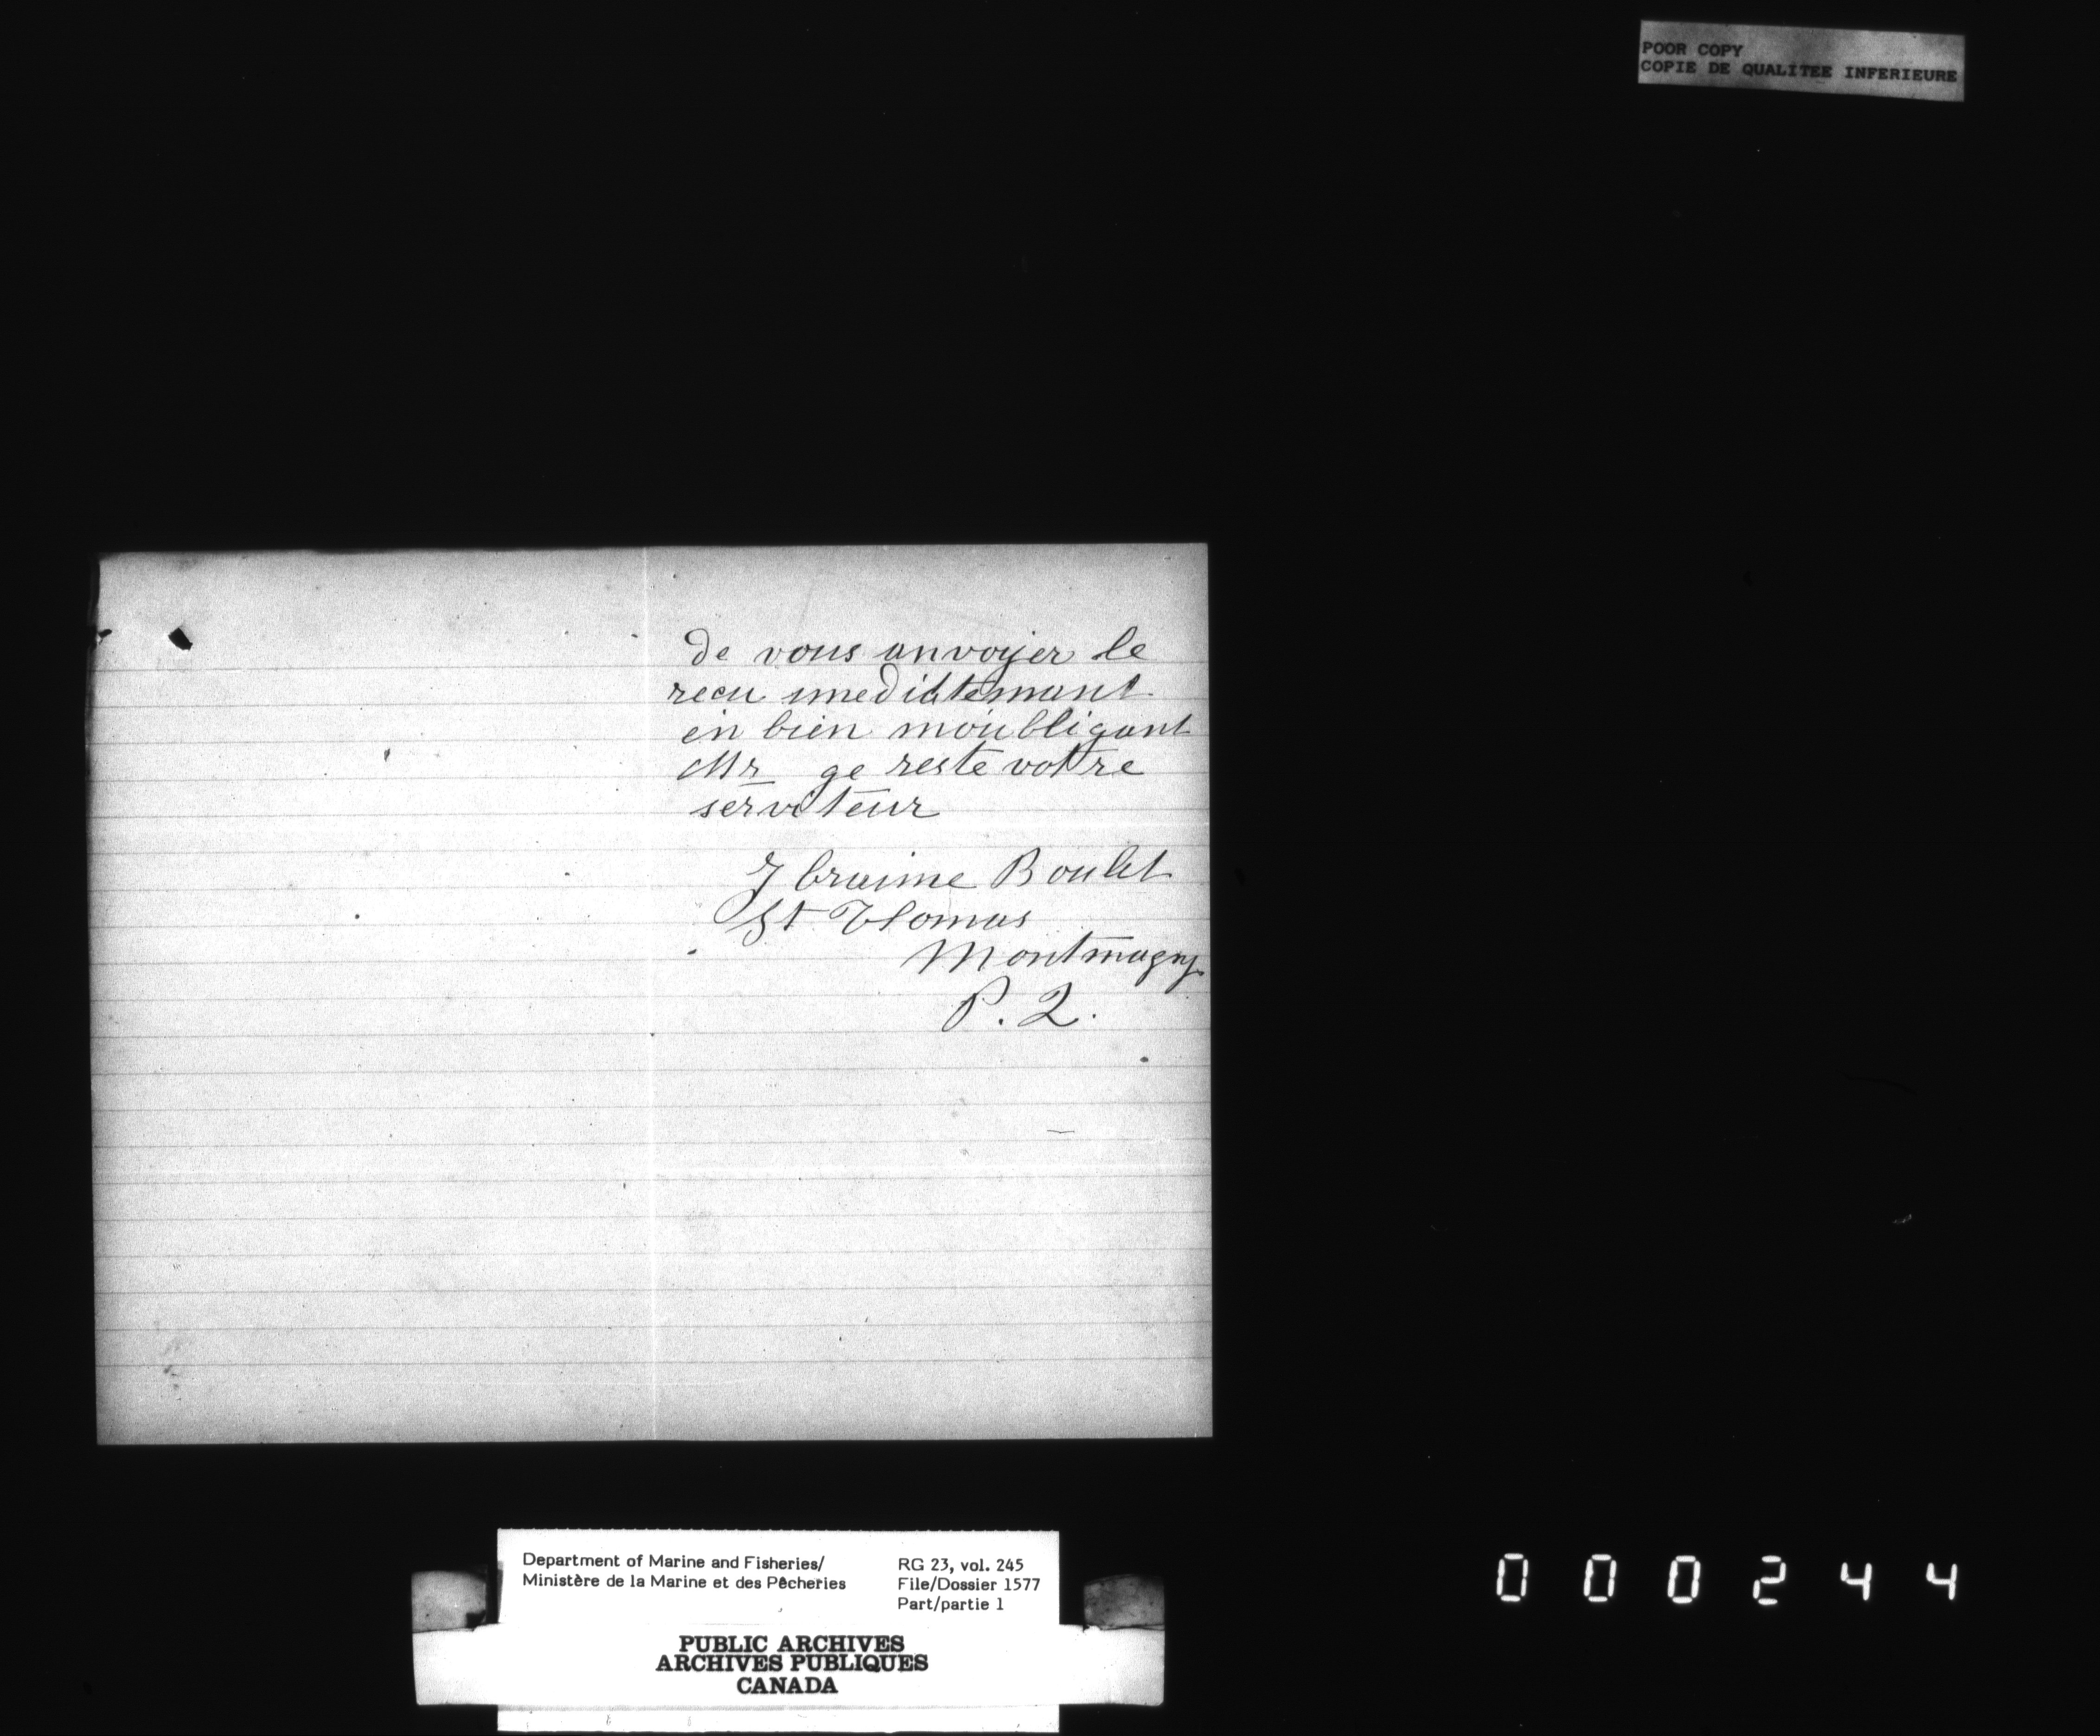 POOR COPY
COPIE DE QUALITEE INFERIEURE
de vous anvoyer le
recu imediatemant
en bien moubligant
Mr ge reste votre
serviteur
Boulet
St Thomas
Montmagny
P. Q.
Department of Marine and Fisheries/
Ministère de la Marine et des Pêcheries
RG 23, vol. 245
File/Dossier 1577
Part/partie 1
PUBLIC ARCHIVES
ARCHIVES PUBLIQUES
CANADA
000244